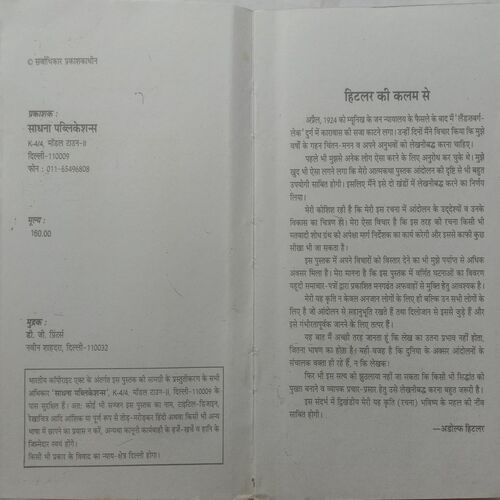 © सर्वाधिकार प्रकाशकाधीन
प्रकाशक :
साधना पब्लिकेशन्स
K-4/4, मॉडल टाउन-II
दिल्ली-110009
फोन : 011-65496808
मूल्य :
160.00
मुद्रक :
डी. जी. प्रिंटर्स
नवीन शाहदरा, दिल्ली-110032
भारतीय कॉपीराइट एक्ट के अंतर्गत इस पुस्तक की सामग्री के प्रस्तुतीकरण के सभी
अधिकार 'साधना पब्लिकेशन्स', K-4/4, मॉडल टाउन-II, दिल्ली-110009 के
पास सुरक्षित हैं। अत: कोई भी सज्जन इस पुस्तक का नाम, टाइटिल-डिजाइन,
रेखाचित्र आदि आंशिक या पूर्ण रूप से तोड़-मरोड़कर हिंदी अथवा किसी भी अन्य
भाषा में छापने का प्रयास न करें, अन्यथा कानूनी कार्यवाही के हर्जे-खर्चे व हानि के
जिम्मेदार स्वयं होंगे।
किसी भी प्रकार के विवाद का न्याय-क्षेत्र दिल्ली होगा।
हिटलर की कलम से
अप्रैल, 1924 को म्यूनिख के जन न्यायालय के फैसले के बाद में 'लैंडज़बर्ग-
लेक' दुर्ग में कारावास की सजा काटने लगा। उन्हीं दिनों मैंने विचार किया कि मुझे
वर्षों के गहन चिंतन-मनन व अपने अनुभवों को लेखनीबद्ध करना चाहिए।
पहले भी मुझसे अनेक लोग ऐसा करने के लिए अनुरोध कर चुके थे। मुझे
खुद भी ऐसा लगने लगा कि मेरी आत्मकथा पुस्तक आंदोलन की दृष्टि से भी बहुत
उपयोगी साबित होगी। इसलिए मैंने इसे दो खंडों में लेखनीबद्ध करने का निर्णय
लिया।
मेरी कोशिश रही है कि मेरी इस रचना में आंदोलन के उद्देश्यों व उनके
विकास का चित्रण हो। मेरा ऐसा विचार है कि इस तरह की रचना किसी भी
मतवादी शोध ग्रंथ की अपेक्षा मार्ग निर्देशक का कार्य करेगी और इससे काफी कुछ
सीखा भी जा सकता है।
इस पुस्तक में अपने विचारों को विस्तार देने का भी मुझे पर्याप्त से अधिक
अवसर मिला है। मेरा मानना है कि इस पुस्तक में वर्णित घटनाओं का विवरण
यहूदी समाचार-पत्रों द्वारा प्रकाशित मनगढ़ंत अफवाहों से मुक्ति हेतु आवश्यक है।
मेरी यह कृति न केवल अनजान लोगों के लिए हो बल्कि उन सभी लोगों के
लिए है जो आंदोलन से सहानुभूति रखते हैं तथा दिलोजान से इससे जुड़े हैं और
इसे गंभीरतापूर्वक जानने के लिए तत्पर हैं।
यह बात मैं अच्छी तरह जानता हूं कि लेख का उतना प्रभाव नहीं होता,
जितना भाषण का होता है। यही वजह है कि दुनिया के अक्सर आंदोलनों के
संचालक वक्ता हो रहे हैं, न कि लेखक।
फिर भी इस सत्य को झुठलाया नहीं जा सकता कि किसी भी सिद्धांत को
पुख्ता बनाने व व्यापक प्रचार-प्रसार हेतु उसे लेखनीबद्ध करना बहुत जरूरी है।
इस संदर्भ में द्विखंडीय मेरी यह कृति (रचना) भविष्य के महल की नींव
साबित होगी।
—अडोल्फ हिटलर